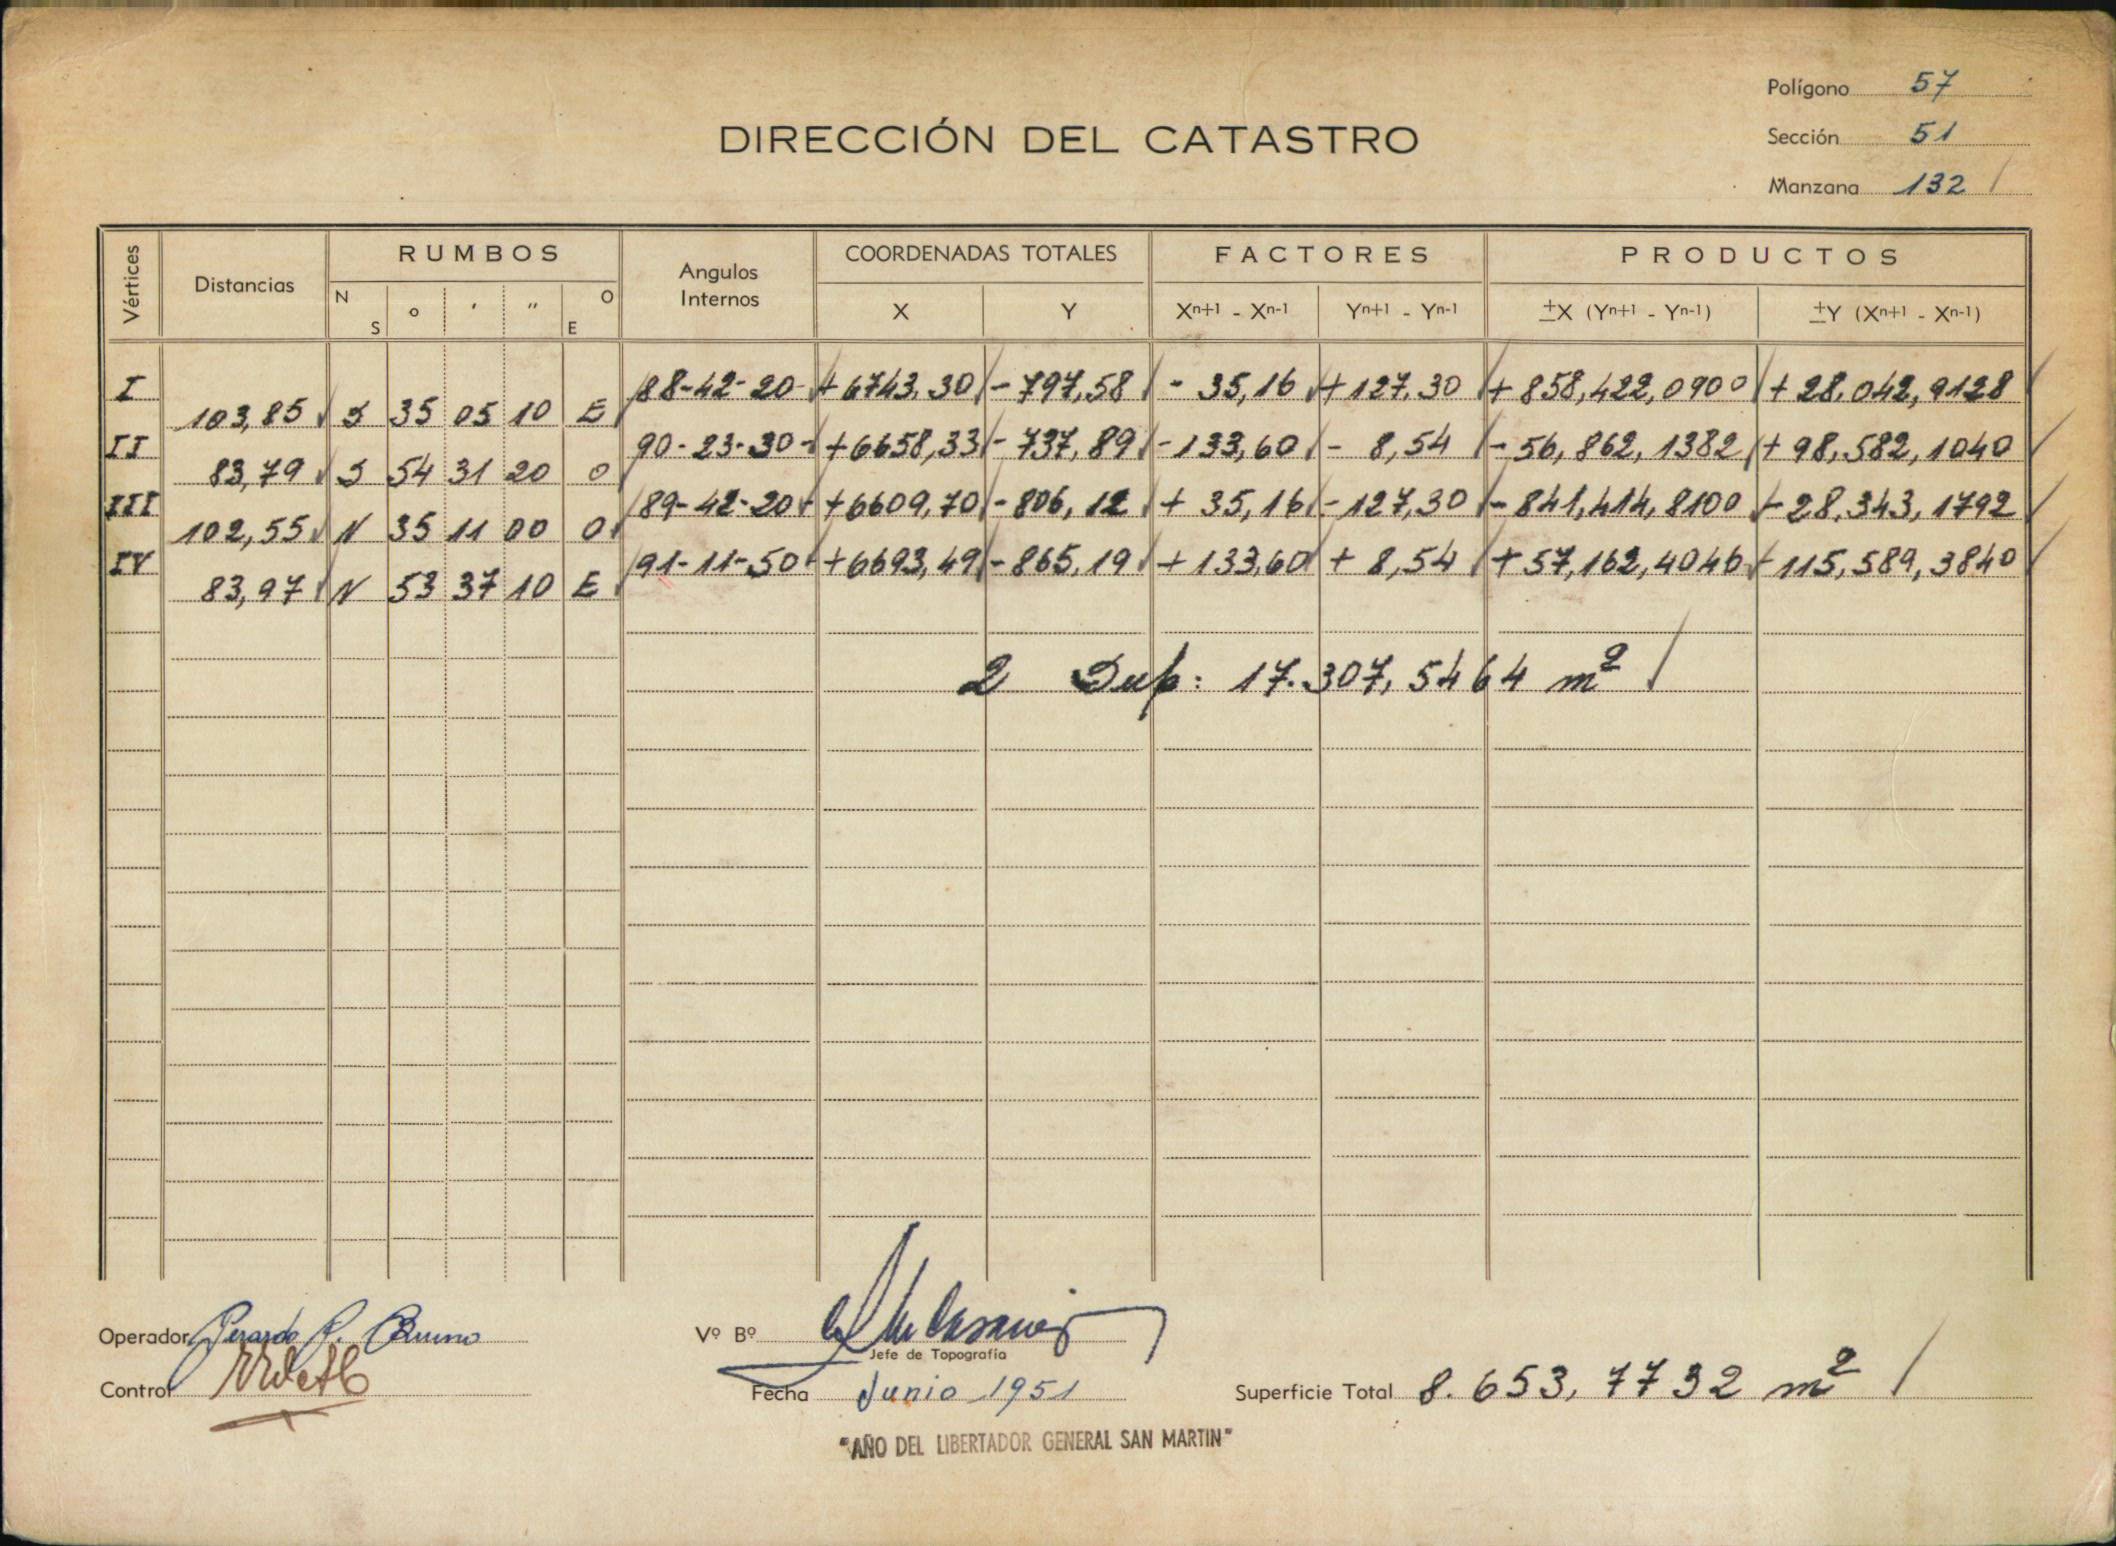 Polígono 57
DIRECCIÓN DEL CATASTRO
Sección 51
Manzana 132 /
Vértices Distancias RUMBOS Angulos Internos COORDENADAS TOTALES FACTORES PRODUCTOS
N S ° ' " O E X Y Xn+1 - Xn-1 Yn+1 - Yn-1 ±X (Yn+1 - Yn-1) ±Y (Xn+1 - Xn-1)
I 88-42-20 +6743,30 -797,58 - 35,16 +127,30 +858,422,0900 +28,042,9128
103,85 S 35 05 10 E
II 90-23-30 +6658,33 -737,89 -133,60 - 8,54 -56,862,1382 +98,582,1040
83,79 S 54 31 20 O
III 89-42-20 +6609,70 -806,12 + 35,16 -127,30 -841,414,8100 -28,343,1792
102,55 N 35 11 00 O
IV 91-11-50 +6693,49 -865,19 +133,60 + 8,54 +57,162,4046 -115,589,3840
83,97 N 53 37 10 E
2 Sup: 17.307,5464 m² /
Operador Gerardo R. Bruno Vº Bº
Jefe de Topografía
Control Fecha Junio 1951 Superficie Total 8.653,7732 m² /
"AÑO DEL LIBERTADOR GENERAL SAN MARTIN"